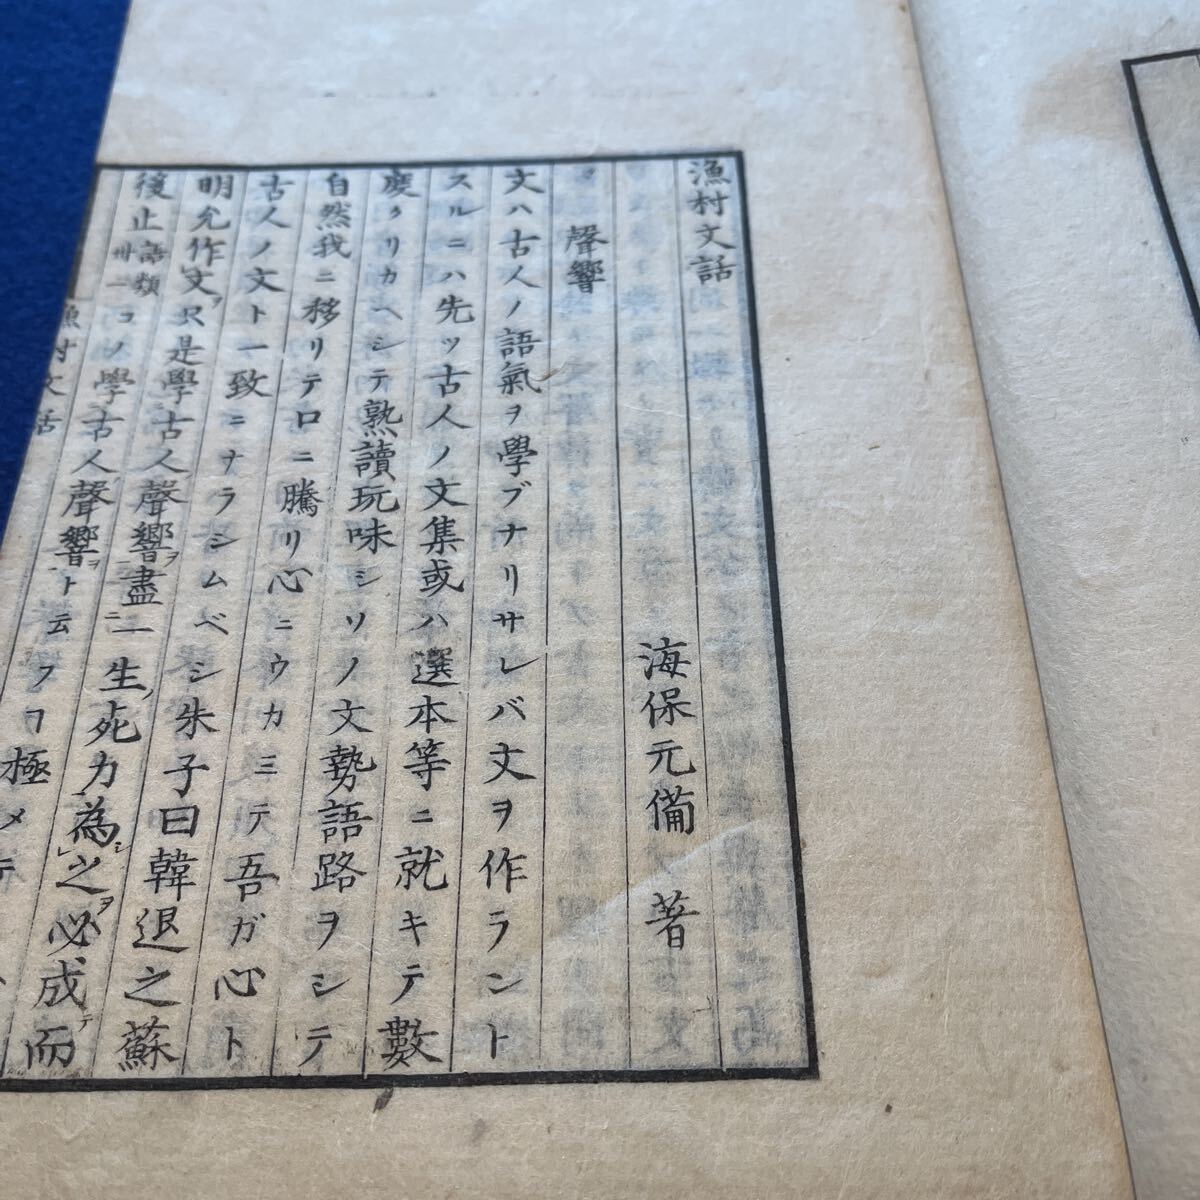 漁村文話
海保元備 著
聲響
文ハ古人ノ語氣ヲ學ブナリサレバ文ヲ作ラント
スルニハ先ッ古人ノ文集或ハ選本等ニ就キテ數
度クリカヘシテ熟讀玩味シソノ文勢語路ヲシテ
自然我ニ移リテ口ニ騰リ心ニウカミテ吾ガ心ト
古人ノ文ト一致ニナラシムベシ朱子曰韓退之蘇
明允作文ヲ只是學古人聲響ヲ盡ニ一生ノ死力為シ之ヲ必成テ而
後止語類卅一コノ學古人聲響ヲト云フヿ極メテ
漁村文話